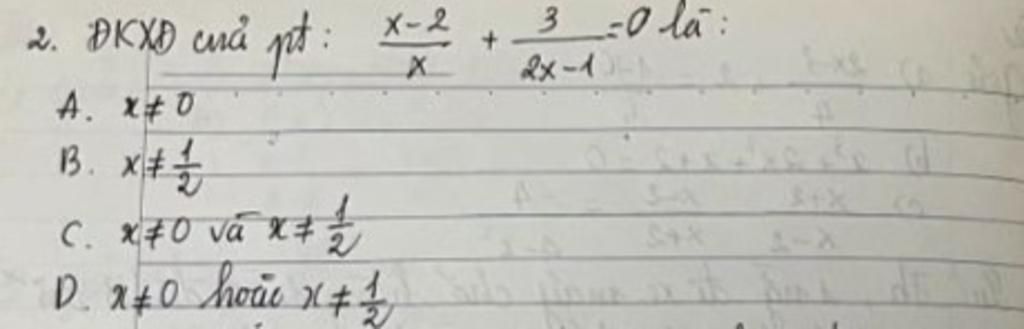 2. ĐKXĐ cuả pt: \frac{x-2}{x} + \frac{3}{2x-1} = 0 là:
A. x ≠ 0
B. x ≠ \frac{1}{2}
C. x ≠ 0 và x ≠ \frac{1}{2}
D. x ≠ 0 hoặc x ≠ \frac{1}{2}